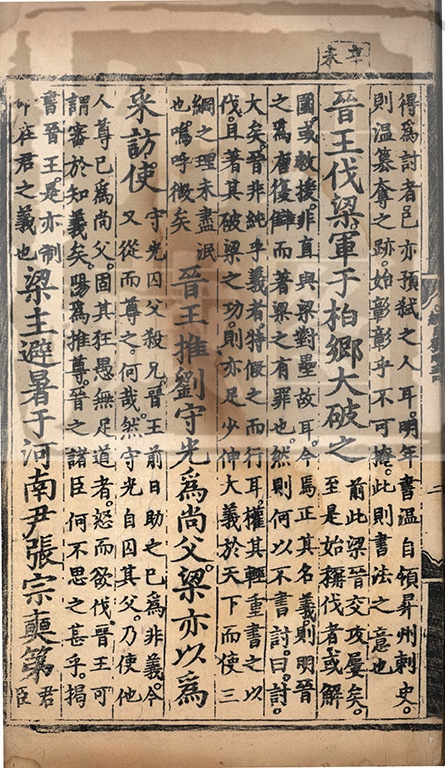 得爲討者邑亦預弑之人耳。明年書溫自領昇州刺史。
則溫簒奪之跡。始彰彰乎不可掩。此則書法之意也
晉王伐梁。軍于柏鄉大破之
前此梁晉交攻屢矣。
至是始稱伐者。或解
圍或救援。非直與梁對壘故耳。今焉正其名義。則明晉
之爲唐復讎而著梁之有罪也。然則何以不書討。曰。討。
大矣。晉非純乎義者。特假之而行耳。權其輕重書之以
伐。且著其破梁之功。則亦足少伸大義於天下而使三
綱之理未盡泯
也。嗚呼微矣
晉王推劉守光爲尚父。梁亦以爲
采訪使
守光囚父殺兄。晉王前日助之已爲非義。今
又從而尊之。何哉。然守光自囚其父。乃使他
人尊已爲尚父。固其狂愚無足道者。怒而欲伐。晉王可
謂審於知義矣。陽爲推尊。晉之諸臣何不思之甚乎。揭
書晉王。是亦制
在君之義也
梁主避暑于河南尹張宗奭第
君
臣